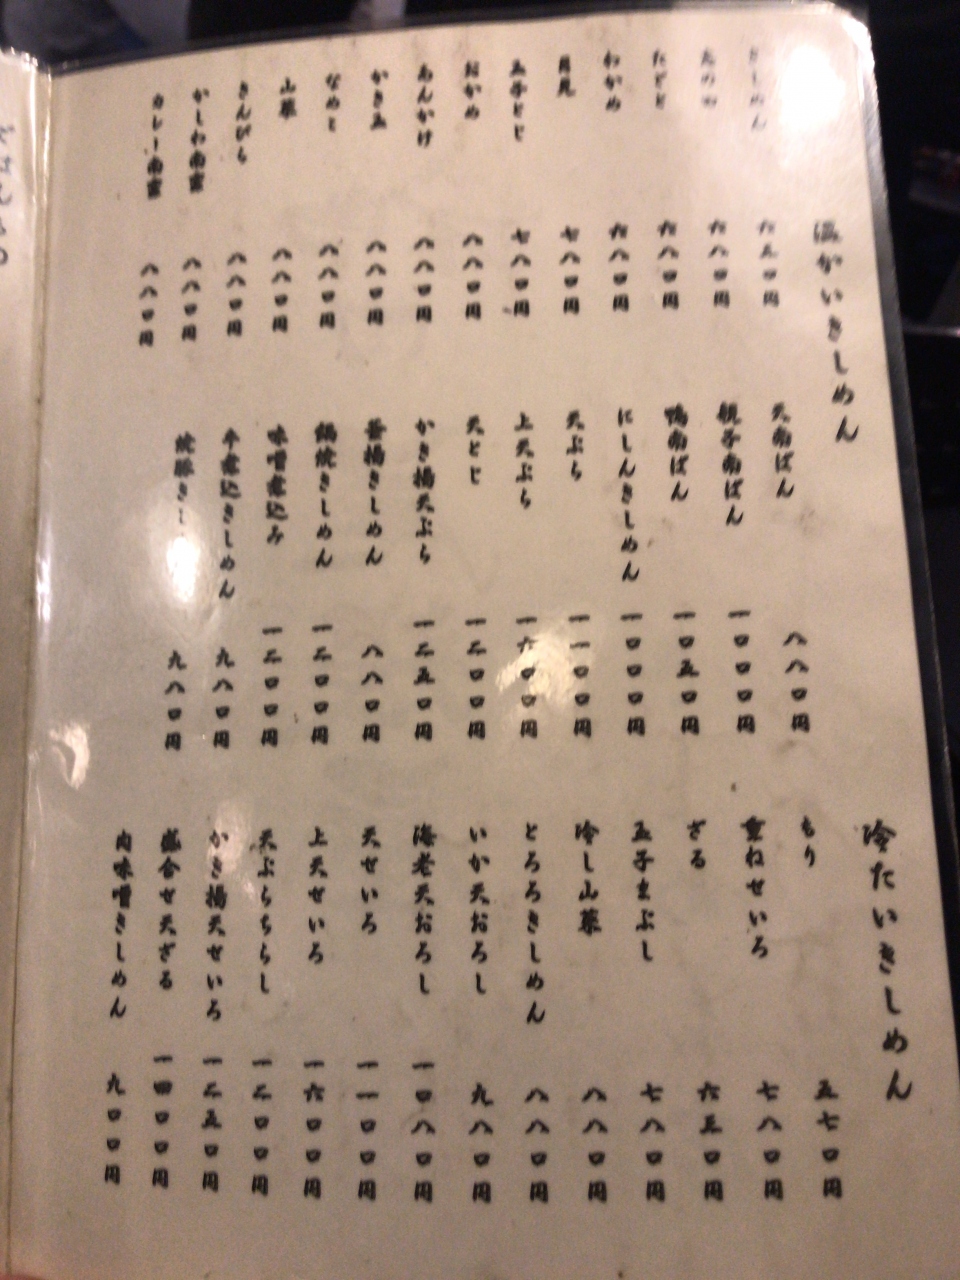 温かいきしめん
きしめん
六五〇円
たぬき
六八〇円
六八〇円
わかめ
六八〇円
月見
七八〇円
玉子とじ
七八〇円
おかめ
八八〇円
あんかけ
八八〇円
かき玉
八八〇円
なめこ
八八〇円
山菜
八八〇円
きんぴら
八八〇円
かしわ南蛮
八八〇円
カレー南蛮
八八〇円
天南ばん
八八〇円
親子南ばん
一〇〇〇円
鴨南ばん
一〇五〇円
にしんきしめん
一〇〇〇円
天ぷら
一一〇〇円
上天ぷら
一六〇〇円
天とじ
一二〇〇円
かき揚天ぷら
一二五〇円
釜揚きしめん
八八〇円
鍋焼きしめん
一二〇〇円
味噌煮込み
一二〇〇円
牛煮込きしめん
九八〇円
焼豚き
九八〇円
冷たいきしめん
もり
五七〇円
重ねせいろ
七八〇円
ざる
六三〇円
玉子まぶし
七八〇円
冷し山菜
八八〇円
とろろきしめん
八八〇円
いか天おろし
九八〇円
海老天おろし
一〇八〇円
天せいろ
一一〇〇円
上天せいろ
一六〇〇円
天ぷらちらし
一二〇〇円
かき揚天せいろ
一二五〇円
盛合せ天ざる
一四〇〇円
肉味噌きしめん
九〇〇円